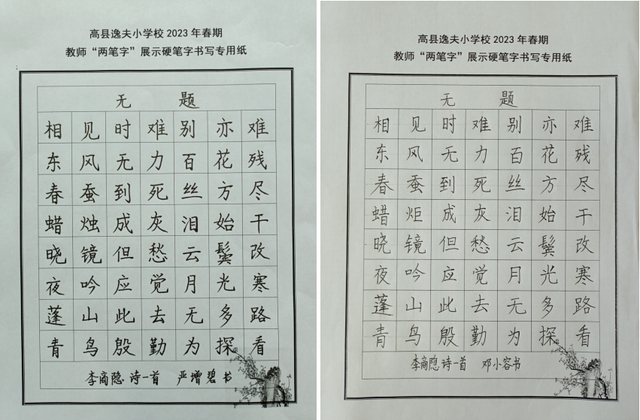 高县逸夫小学校 2023 年春期
教师“两笔字”展示硬笔字书写专用纸
无题
相见时难别亦难
东风无力百花残
春蚕到死丝方尽
蜡烛成灰泪始干
晓镜但愁云鬓改
夜吟应觉月光寒
蓬山此去无多路
青鸟殷勤为探看
李商隐诗一首 严增碧书
高县逸夫小学校 2023 年春期
教师“两笔字”展示硬笔字书写专用纸
无题
相见时难别亦难
东风无力百花残
春蚕到死丝方尽
蜡炬成灰泪始干
晓镜但愁云鬓改
夜吟应觉月光寒
蓬山此去无多路
青鸟殷勤为探看
李商隐诗一首 邓小容书